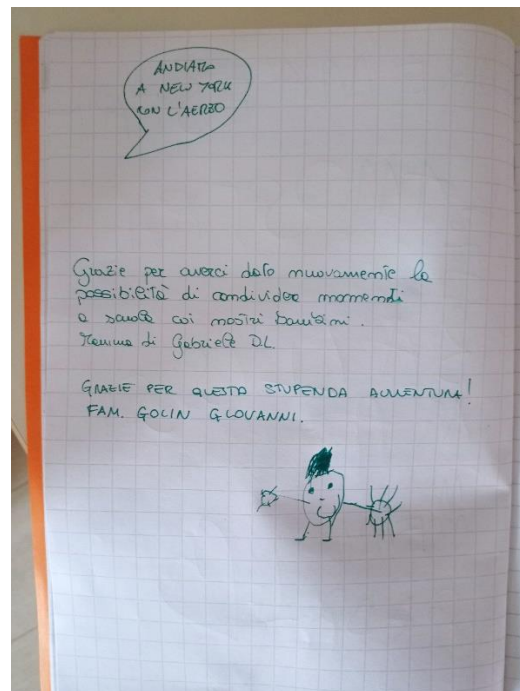 ANDIAMO
A NEW YORK
CON L'AEREO
Grazie per averci dato nuovamente la
possibilità di condividere momenti
a scuola coi nostri bambini.
Mamma di Gabriele D.L.
GRAZIE PER QUESTA STUPENDA AVVENTURA!
FAM. GOLIN GIOVANNI.